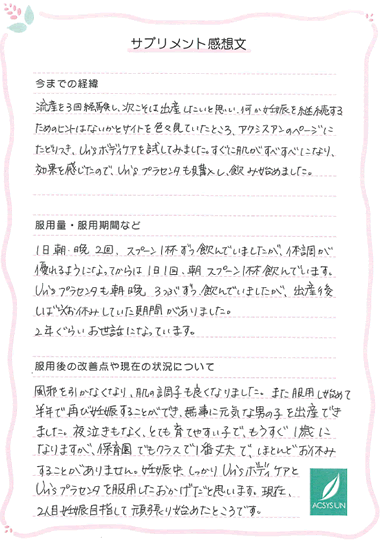 サプリメント感想文
今までの経緯
流産を3回経験し、次こそは出産したいと思い、何か妊娠を継続する
ためのヒントはないかとサイトを色々見ていたところ、アクシスアンのページに
たどりつき、Uri'sボディケアを試してみました。すぐに肌がすべすべになり、
効果を感じたので、Uri'sプラセンタも購入し、飲み始めました。
服用量・服用期間など
1日朝・晩 2回、スプーン1杯ずつ飲んでいましたが、体調が
優れるようになってからは1日1回、朝スプーン1杯飲んでいます。
Uri'sプラセンタも朝晩 3つずつ飲んでいましたが、出産後
しばらくお休みしていた期間がありました。
2年ぐらいお世話になっています。
服用後の改善点や現在の状況について
風邪を引かなくなり、肌の調子も良くなりました。また服用し始めて
半年で再び妊娠することができ、無事に元気な男の子を出産でき
ました。夜泣きもなく、とても育てやすい子で、もうすぐ1歳に
なりますが、保育園でもクラスで1番丈夫で、ほとんどお休み
することがありません。妊娠中、しっかりUri'sボディケアと
Uri'sプラセンタを服用したおかげだと思います。現在、
2人目妊娠目指して頑張り始めたところです。
ACSYSUN